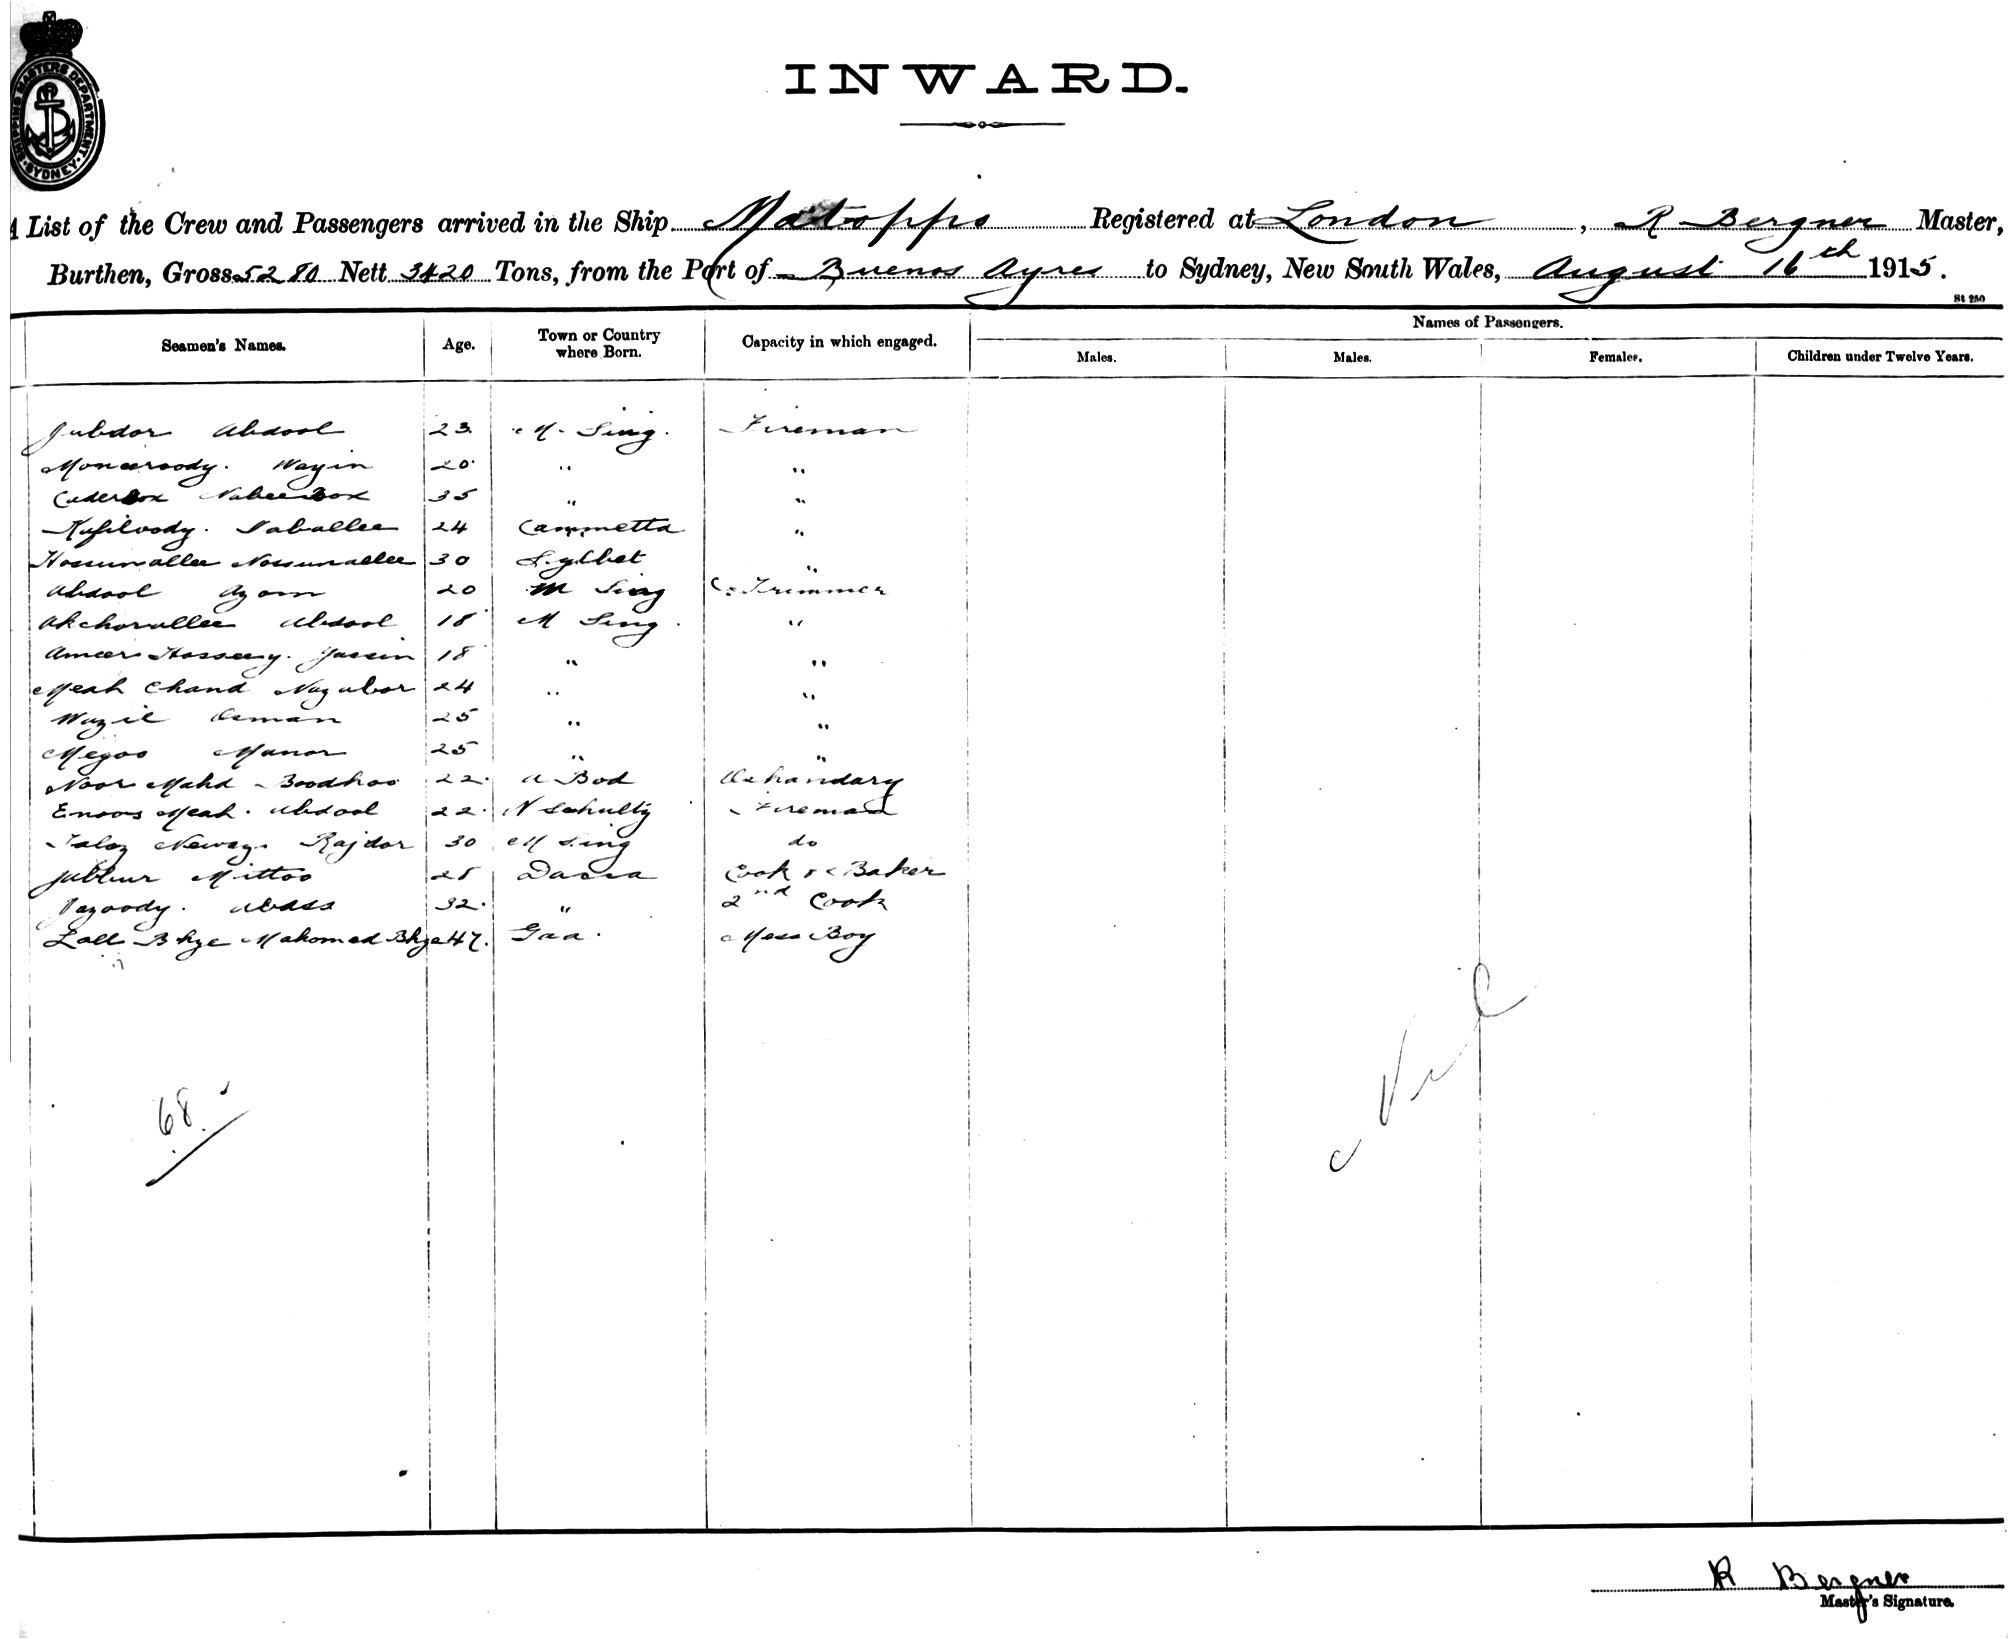 SHIPPING MASTERS DEPARTMENT SYDNEY
INWARD.
A List of the Crew and Passengers arrived in the Ship Matoppo Registered at London, R Bergner Master,
Burthen, Gross 5280 Nett 3420 Tons, from the Port of Buenos Ayres to Sydney, New South Wales, August 16th 1915.
St 250
Seamen's Names. Age. Town or Country where Born. Capacity in which engaged. Names of Passengers.
Males. Males. Females. Children under Twelve Years.
Jubdor Abdool 23 M. Sing. Fireman
Moneeroody. Wayin 20 " "
Caderbox Nabeebox 35 " "
24 Cammetta "
Hossunallee Nossunallee 30 Sylhet "
Abdool Azom 20 M Sing C. Trimmer
Akchorallee Abdool 18 M Sing. "
Ameer Jassin 18 " "
Meah Chand Nazubor 24 " "
Wazil Osman 25 " "
Megoo Manor 25 " "
Noor Mahd Boodhoo 22. A Bod
Enoos Meah. Abdool 22. Fireman
Rajdor 30 M Sing do
Jubbur Mittoo 28 Dacca Cook & Baker
Abdss 32. " 2nd Cook
Lall Bhye Mahomed Bhye 47. Goa. Mess Boy
Nil
68
R Bergner
Master's Signature.